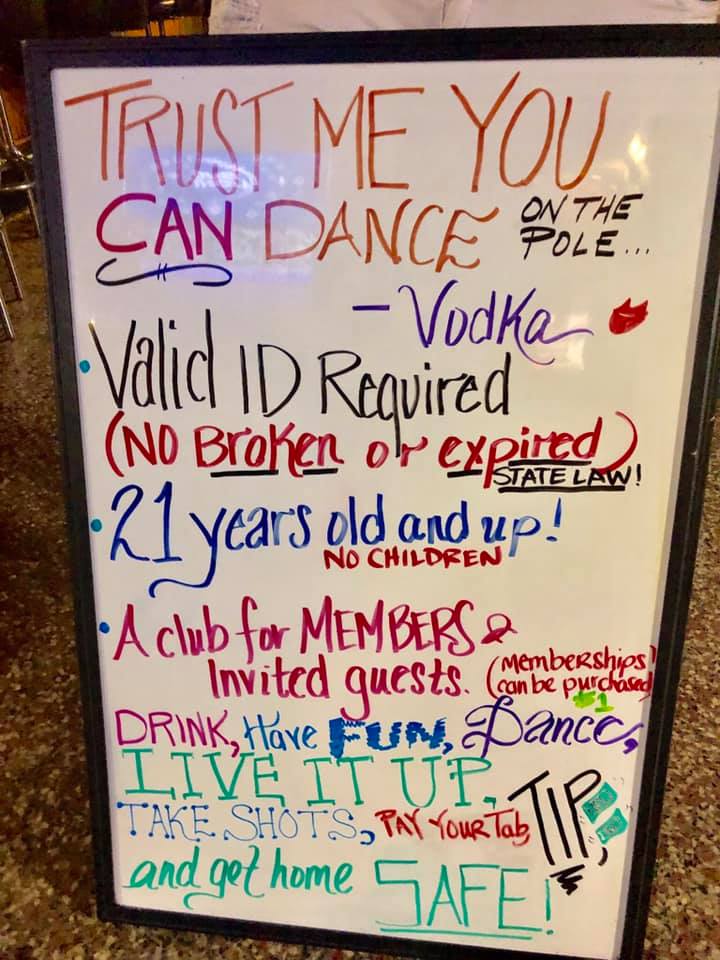 TRUST ME YOU
CAN DANCE ON THE POLE...
- Vodka
• Valid ID Required
(NO Broken or expired)
STATE LAW!
• 21 years old and up!
NO CHILDREN
• A club for MEMBERS &
Invited guests. (Memberships can be purchased)
$1
DRINK, Have FUN, Dance,
LIVE IT UP,
TAKE SHOTS, PAY YOUR Tab, TIP,
and get home SAFE!